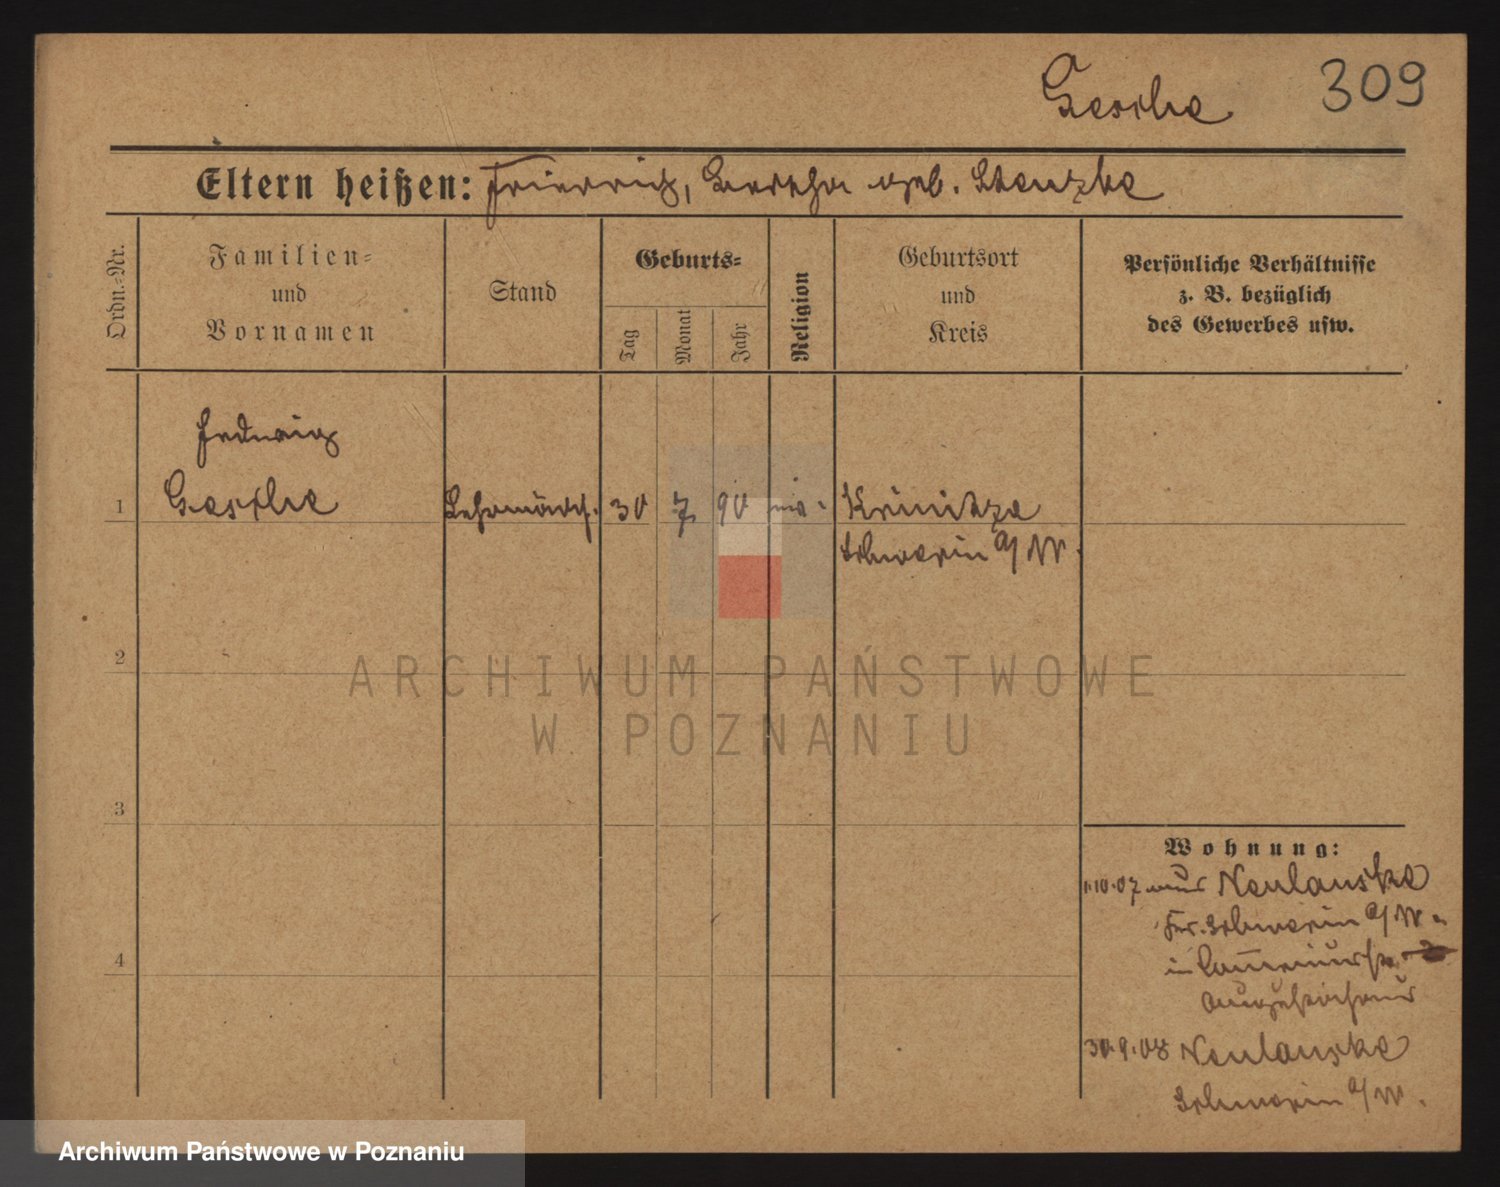 Geschke 309
Eltern heißen: Friedrich, Bertha geb. Stenzke
Ordn.-Nr.
Familien-
und
Vornamen
Stand
Geburts-
Tag
Monat
Jahr
Religion
Geburtsort
und
Kreis
Persönliche Verhältnisse
z. B. bezüglich
des Gewerbes usw.
Hedwig
1 Geschke Lehrmädch. 30 7 90 Krinitze
Schwerin a/W.
2
3
4
Wohnung:
1.10.07 aus
Kr. Schwerin a/W.
in
30.9.08
Schwerin a/W.
ARCHIWUM PAŃSTWOWE
W POZNANIU
Archiwum Państwowe w Poznaniu